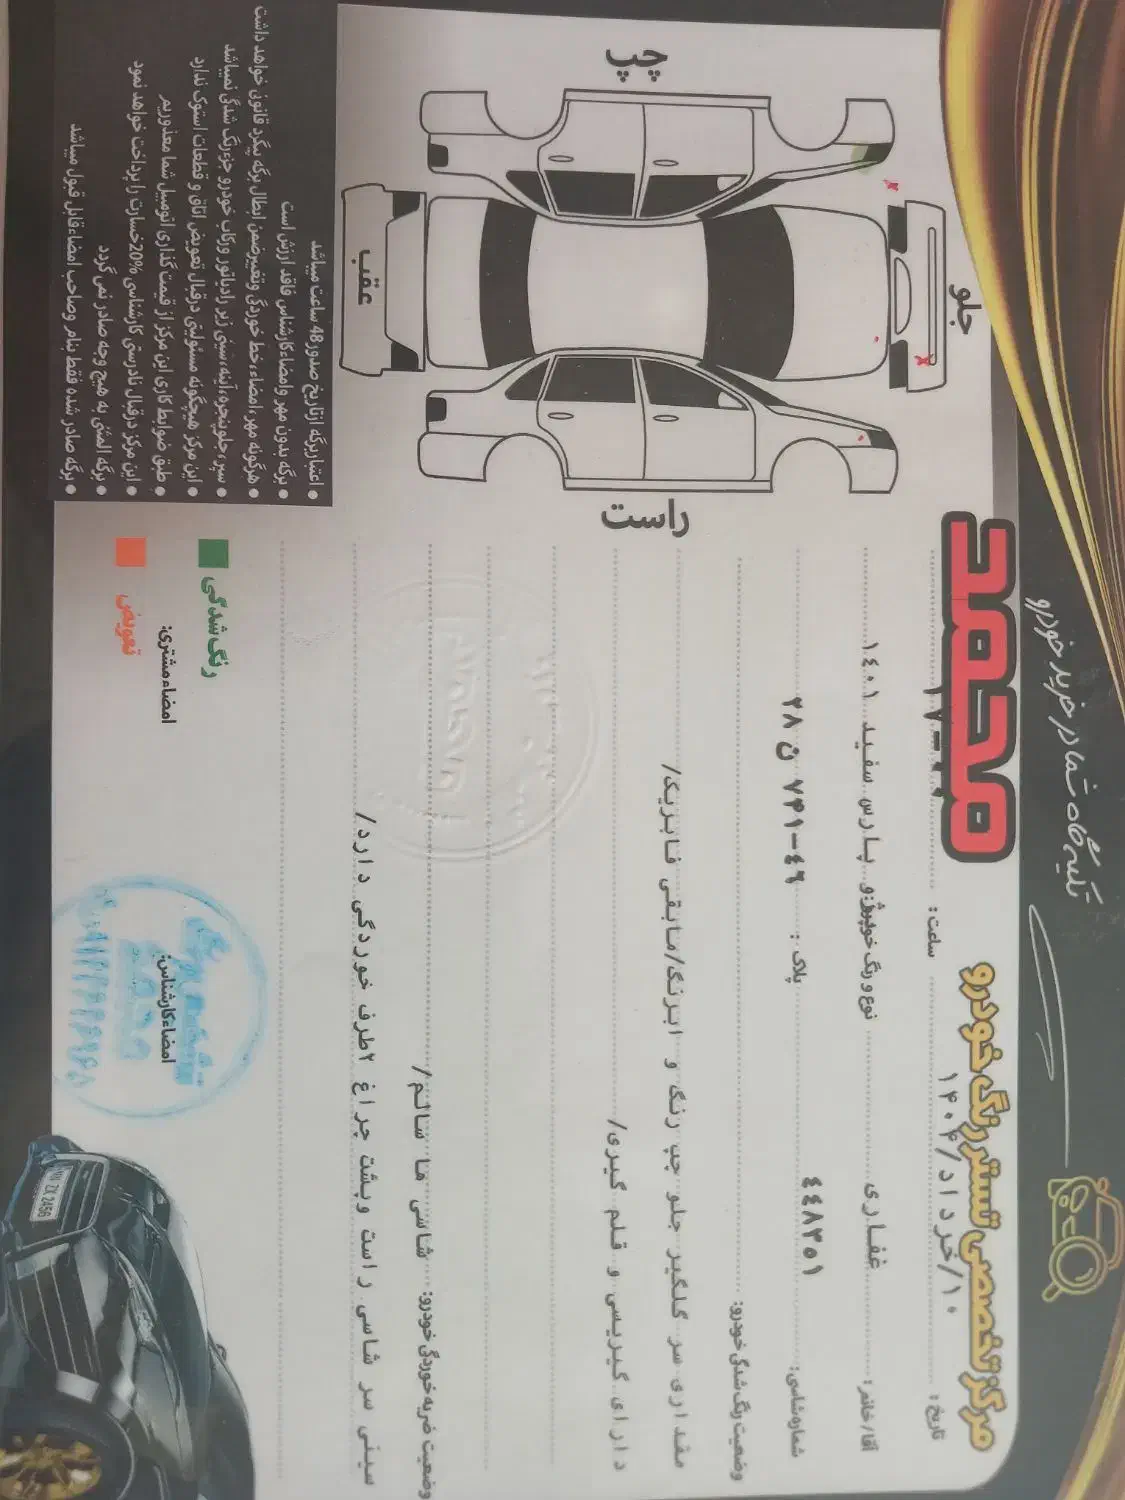 تکیه گاه شما در خرید خودرو
محمد
مرکز تخصصی تستر رنگ خودرو
تاریخ : ۱۰/خرداد/۱۴۰۴
ساعت : ۱۷-۰۰
آقا/خانم : غفاری
نوع و رنگ خودرو: پژو پارس سفید ۱۴۰۱
شماره شاسی: ۴۴۸۳۵۱
پلاک :
وضعیت رنگ شدگی خودرو:
مقداری سر گلگیر جلو چپ رنگ و ابرنگ/مابقی فابریک/
دارای گیریسی و قلم گیری/
وضعیت ضربه خوردگی خودرو: شاسی ها سالم/
سینی سر شاسی راست وپشت چراغ ۲طرف خوردگی دارد/
چپ
جلو
عقب
راست
● اعتباربرگه ازتاریخ صدور48 ساعت میباشد
● برگه بدون مهر وامضاءکارشناس فاقد ارزش است
● هرگونه مهر،امضاء،خط خوردگی وتغییرضمن ابطال برگه پیگرد قانونی خواهد داشت
● سپر،جلوپنجره،آینه،سینی زیر رادیاتور ورکاب خودرو جزءرنگ شدگی نمیباشد
● این مرکز هیچگونه مسئولیتی درقبال تعویض اتاق و قطعات استوک ندارد
● طبق ضوابط کاری این مرکز از قیمت گذاری اتومبیل شما معذوریم
● این مرکز درقبال نادرستی کارشناسی 20%خسارت را پرداخت خواهد نمود
● برگه المثنی به هیچ وجه صادر نمی گردد
● برگه صادر شده فقط بنام وصاحب امضاءقابل قبول میباشد
رنگ شدگی
تعویض
امضاء مشتری:
امضاءکارشناس: